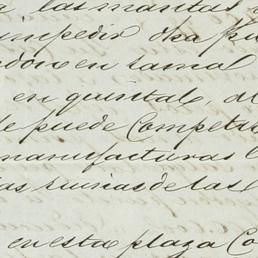 las mantas
impedir
en
en quintal, al
se puede Competir
manufacturas
las ruinas de las
en esta plaza Co